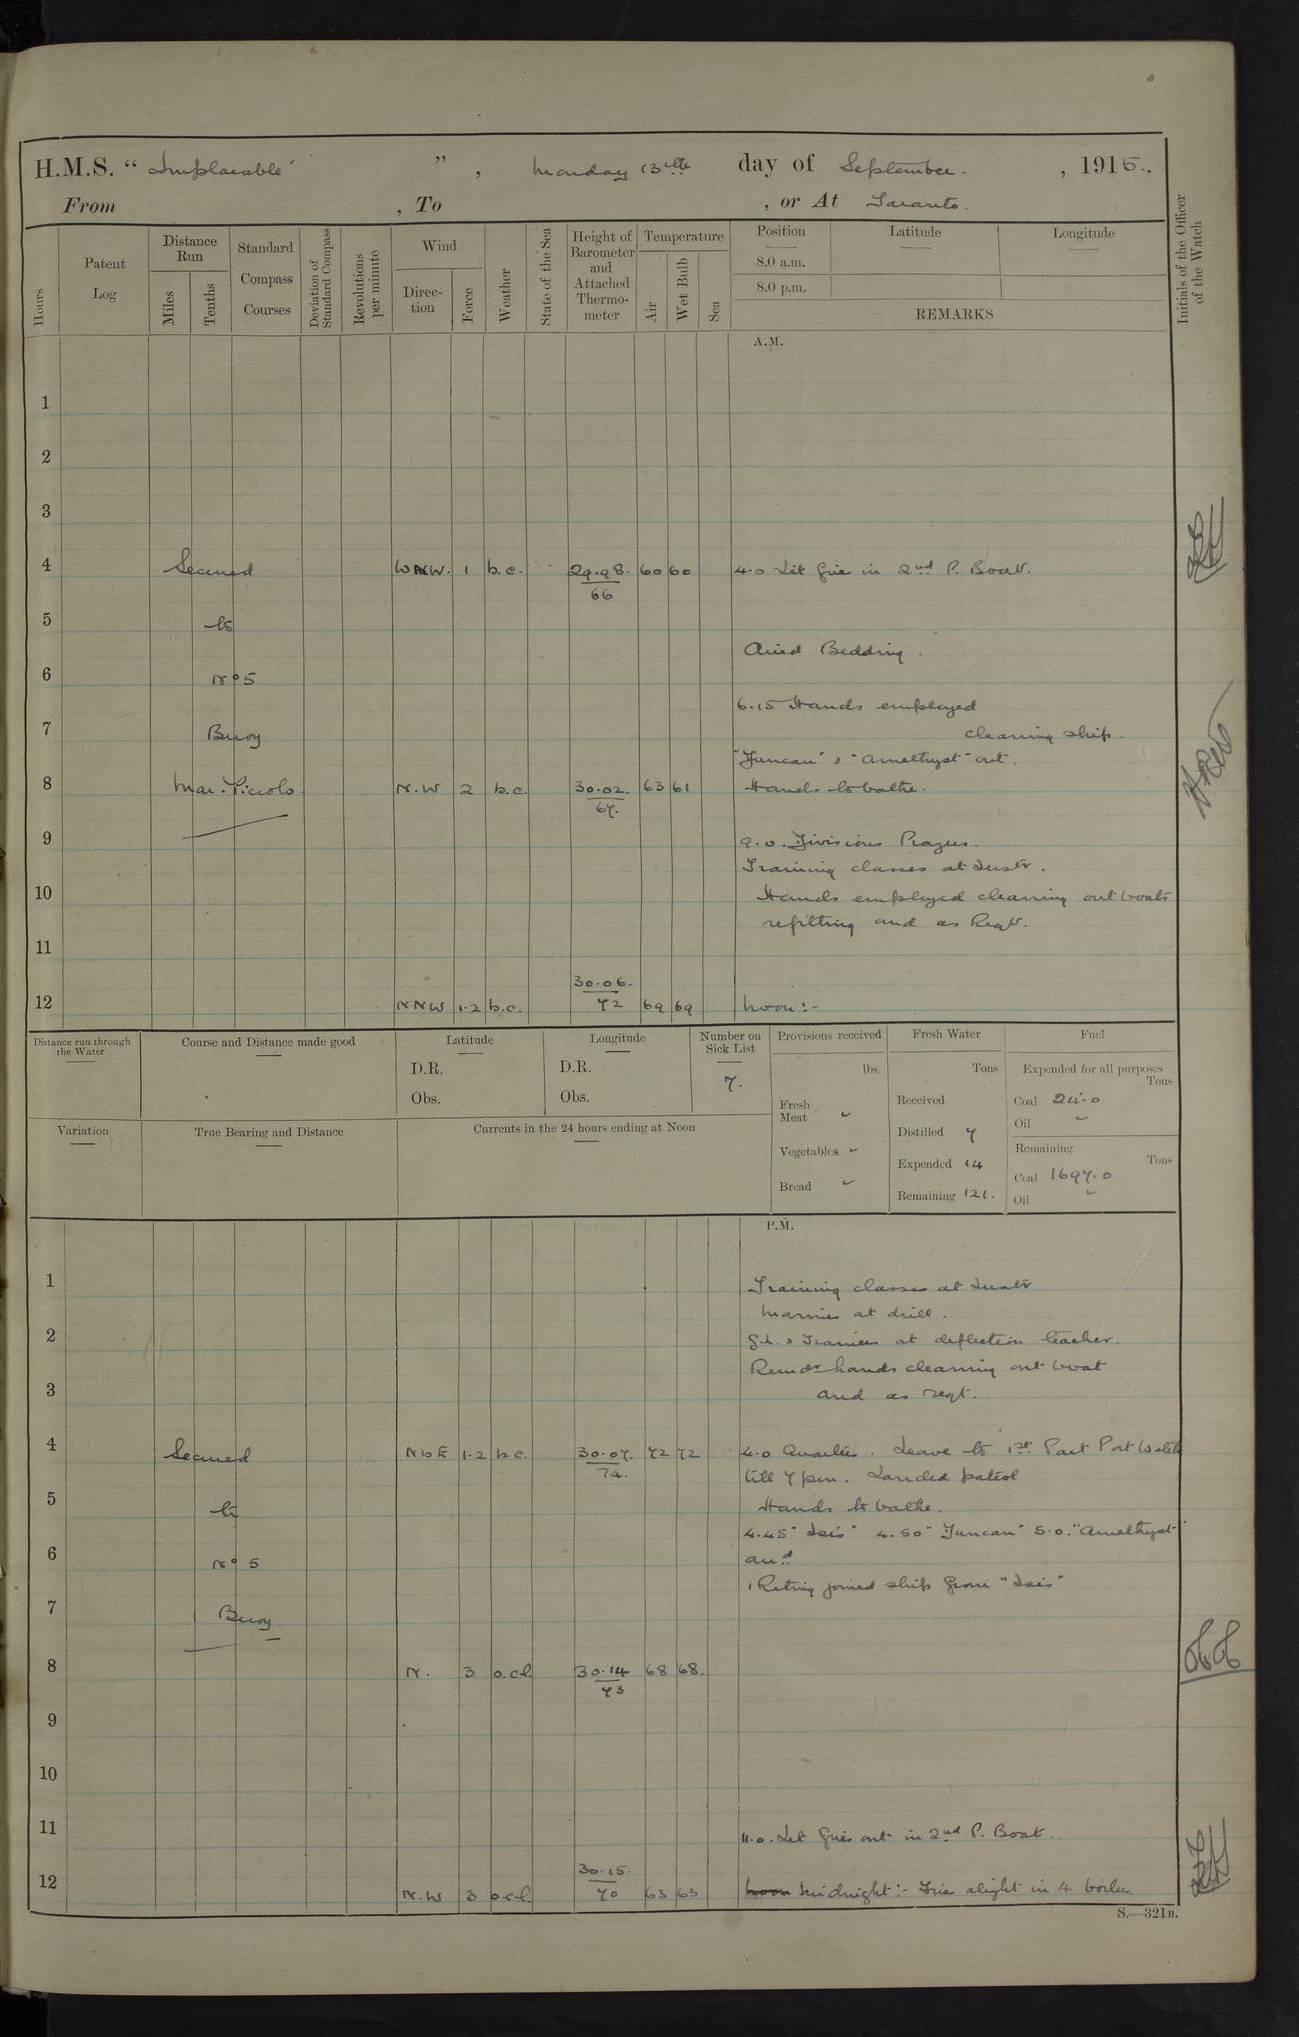 H.M.S. "Implacable", Monday 13th day of September, 1915.
From , To , or At Taranto.
Hours
Patent Log
Distance Run
Miles
Tenths
Standard Compass Courses
Deviation of Standard Compass
Revolutions per minute
Wind
Direction
Force
Weather
State of the Sea
Height of Barometer and Attached Thermometer
Temperature
Air
Wet Bulb
Sea
Position
Latitude
Longitude
8.0 a.m.
8.0 p.m.
REMARKS
Initials of the Officer of the Watch
A.M.
1
2
3
4 Secured WNW. 1 b.c. 29.98 66 60 60 4.0 Lit fire in 2nd P. Boat.
5 to
Aired Bedding.
6 No 5
6.15 Hands employed
7 Buoy cleaning ship.
"Duncan" & "Amethyst" out.
8 Mar Piccolo N.W 2 b.c. 30.02 67. 63 61 Hands to bathe.
9 9.0. Divisions Prayers.
Training classes at Instr.
10 Hands employed cleaning out boats
refitting and as Reqt.
11
12 NNW 1.2 b.c. 30.06 72 69 69 Noon:-
Distance run through the Water
Course and Distance made good
Latitude
D.R.
Obs.
Longitude
D.R.
Obs.
Number on Sick List
7.
Provisions received
lbs.
Fresh Meat
Vegetables
Bread
Fresh Water
Tons
Received
Distilled 7
Expended 14
Remaining 121.
Fuel
Expended for all purposes
Tons
Coal 24.0
Oil
Remaining
Tons
Coal 1697.0
Oil
Variation
True Bearing and Distance
Currents in the 24 hours ending at Noon
P.M.
1 Training classes at Instr
Marines at drill.
2 G.L. & Trainers at deflection teacher.
Remdr hands cleaning out boat
3 and as reqt.
4 Secured NbE 1.2 b.c. 30.07. 74. 72 72 4.0 Quarters. Leave to 1st Part Port Watch
till 7 pm. Landed patrol
5 to Hands to bathe.
4.45 "Isis" 4.50 "Duncan" 5.0. "Amethyst"
6 No 5 arrd
1 Rating joined ship from "Isis"
7 Buoy
8 N. 3 o.cl. 30.14 73 68 68.
9
10
11 11.0. Let fires out in 2nd P. Boat.
12 N.W 3 o.cl. 30.15. 70 63 63 Noon Midnight:- Fire alight in 4 boiler
S.—321B.